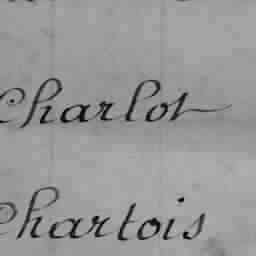 Charlot
Chartois